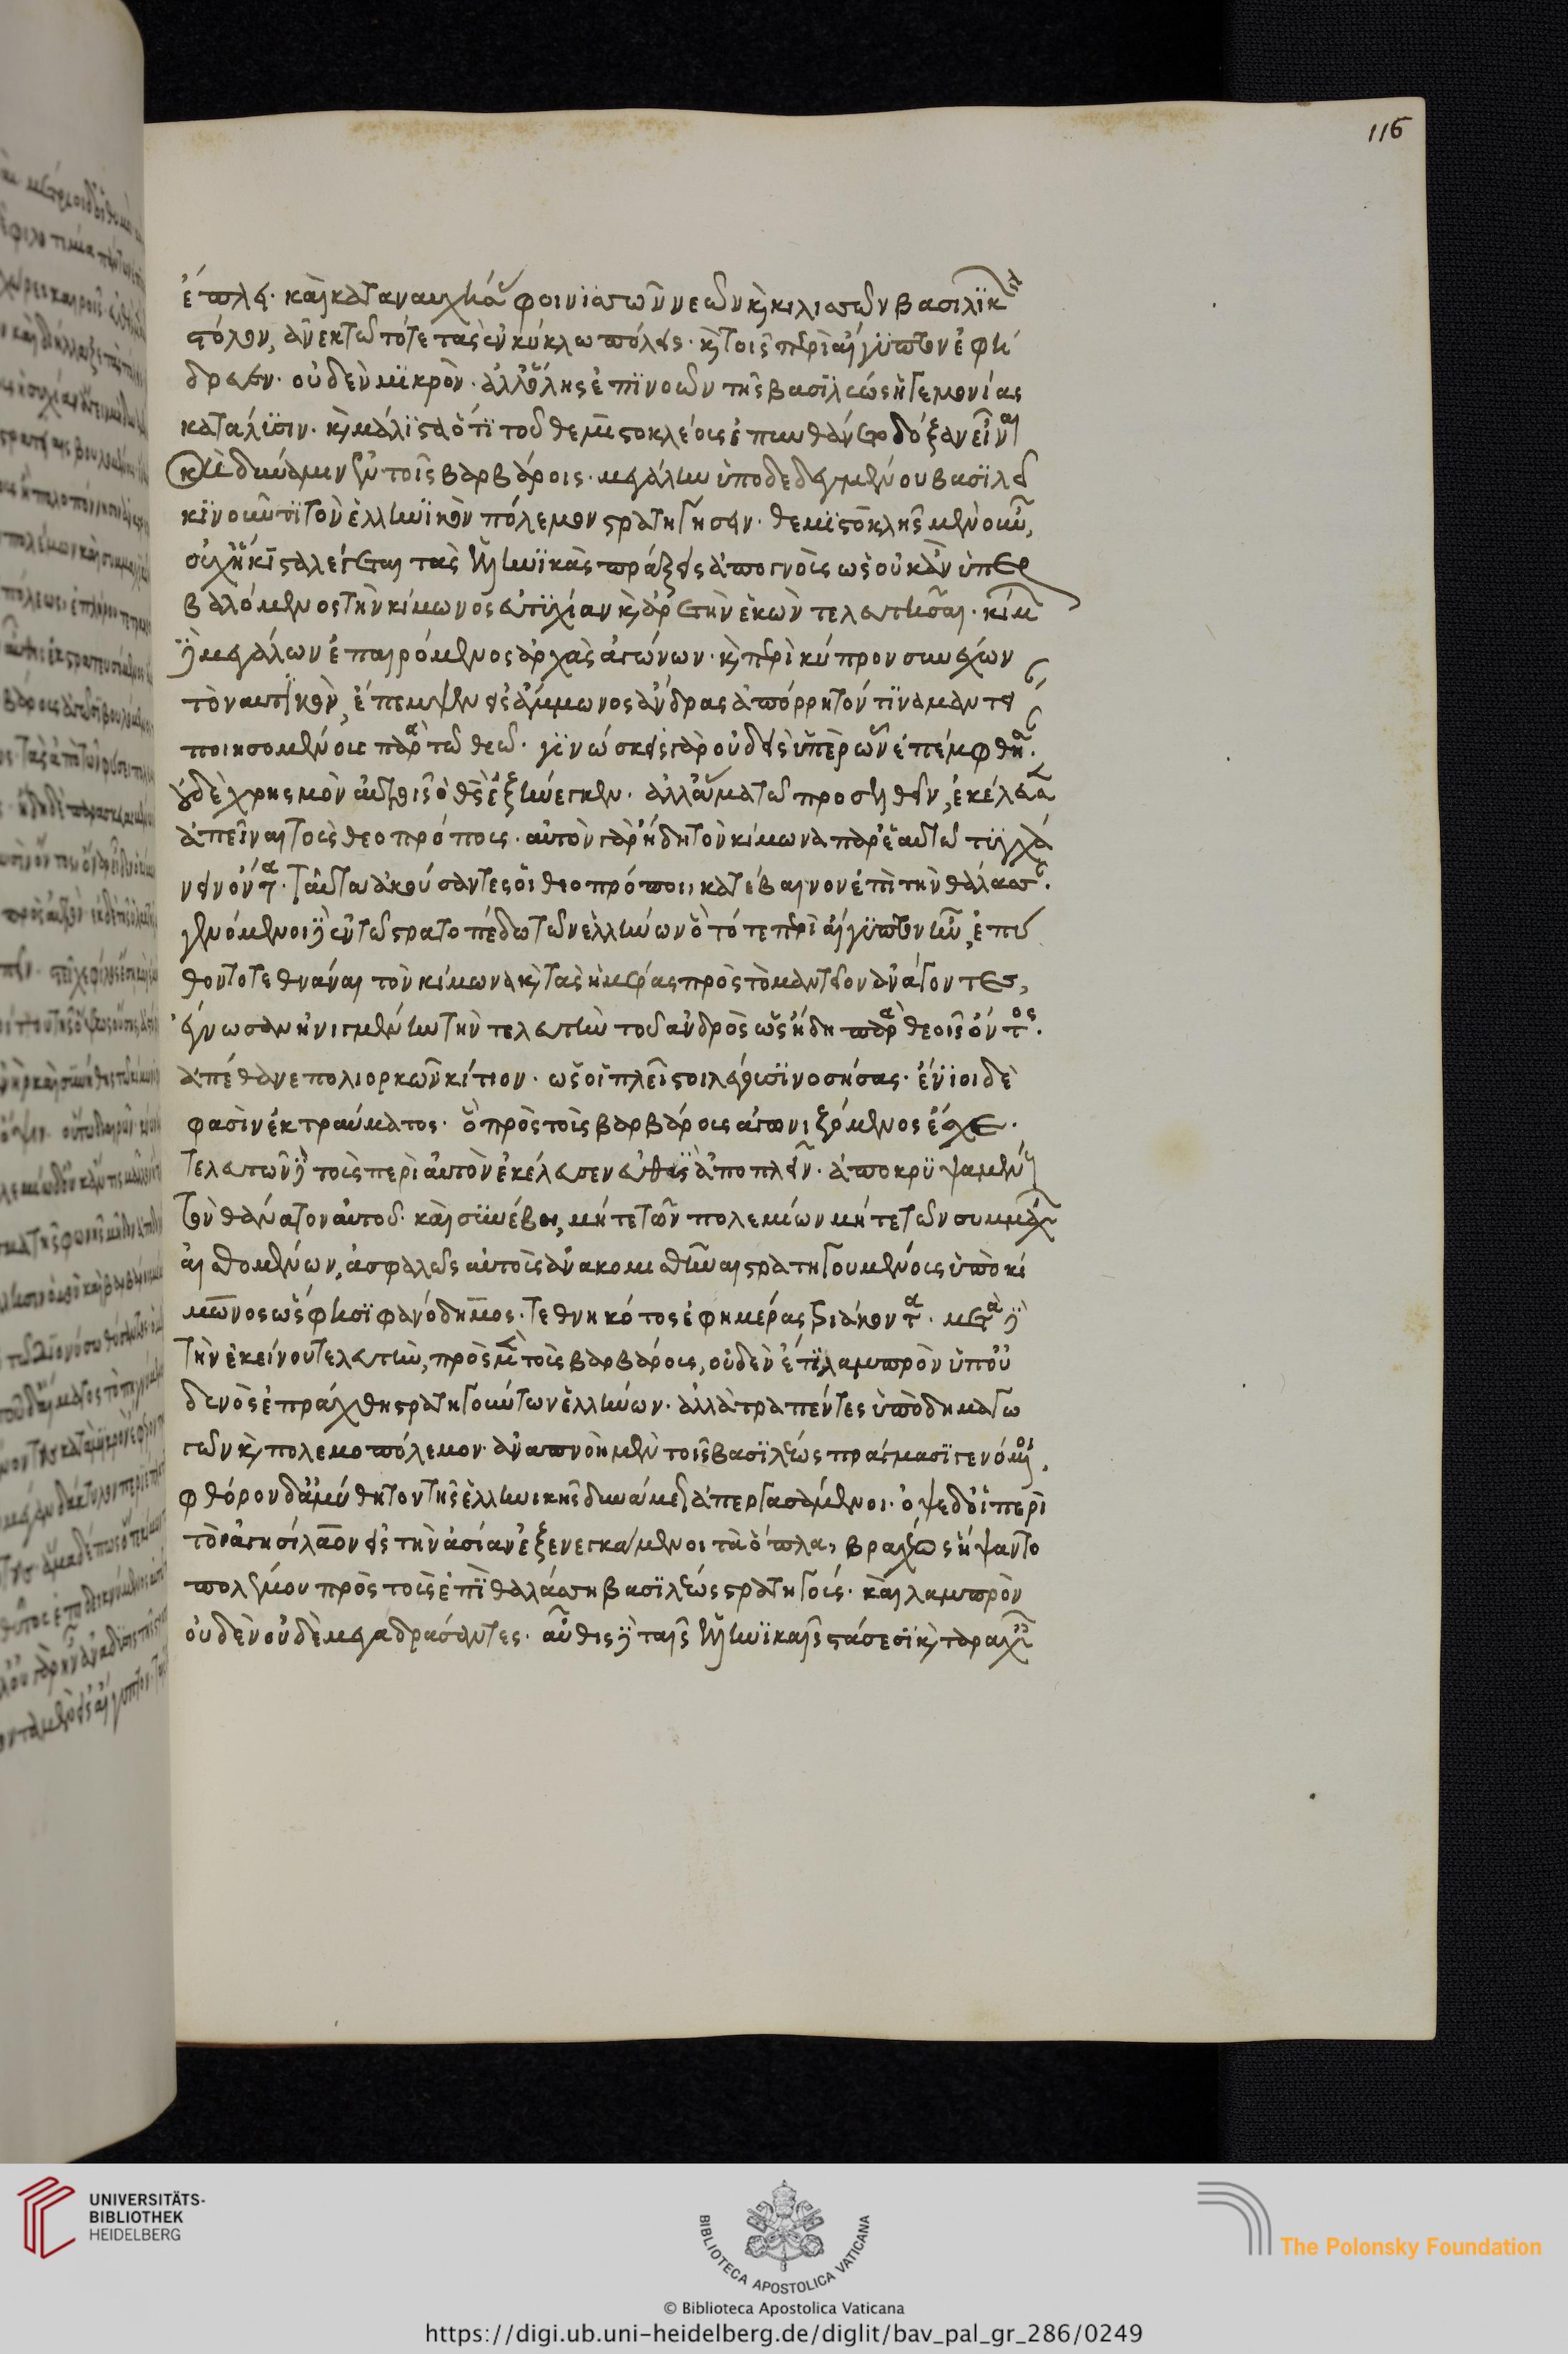 ἔπλει· καὶ καταναυμαχήσας φοινισσῶν νεῶν καὶ κιλισσῶν βασιλικὸν
στόλον, ἀνεκτᾶτό τε τὰς ἐν κύκλω πόλεις· καὶ τοῖς περὶ αἴγυπτον ἐφή
δρευεν· οὐδὲν μικρὸν· ἀλλ' ὅλης ἐπινοῶν τῆς βασιλέως ἡγεμονίας
κατάλυσιν· καὶ μάλιστα ὅτι τοῦ θεμιστοκλέους ἐπυνθάνετο δόξαν εἶναι
καὶ δύναμιν ἐν τοῖς βαρβάροις· μεγάλην ὑποδεδεγμένου βασιλεῖ
κινοῦντι τὸν ἑλληνικὸν πόλεμον στρατηγήσειν· θεμιστοκλῆς μὲν οὖν,
οὐχ ἥκιστα λέγεται τὰς ἑλληνικὰς πράξεις ἀπογνοὺς ὡς οὐκ ἂν ὑπερ
βαλόμενος τὴν κίμωνος εὐτυχίαν καὶ ἀρετὴν ἑκὼν τελευτῆσαι· κίμων
δὲ μεγάλων ἐπαιρόμενος ἀρχὰς ἀγώνων· καὶ περὶ κύπρον συνέχων
τὸ ναυτικὸν, ἔπεμψεν εἰς ἄμμωνος ἄνδρας ἀπόρρητόν τινα μαντείαν
ποιησομένους παρὰ τῶ θεῶ· γινώσκει γὰρ οὐδεὶς ὑπὲρ ὧν ἐπέμφθησαν·
οὐδὲ χρησμὸν αὐτοῖς ὁ θεὸς ἐξήνεγκεν· ἀλλ' ἅμα τῶ προσελθεῖν, ἐκέλευσεν
ἀπεῖναι τοὺς θεοπρόπους· αὐτὸν γὰρ ἤδη τὸν κίμωνα παρ' ἑαυτῶ τυγχά
νειν ὄντα· ταῦτα ἀκούσαντες οἱ θεοπρόποι, κατέβαινον ἐπὶ τὴν θάλασσαν·
γενόμενοι δὲ ἐν τῶ στρατοπέδω τῶν ἑλλήνων ὃ τότε περὶ αἴγυπτον ἦν, ἐπύ
θοντο τεθνάναι τὸν κίμωνα καὶ τὰς ἡμέρας πρὸς τὸ μαντεῖον ἀνάγοντες,
ἔγνωσαν ἠνιγμένην τὴν τελευτὴν τοῦ ἀνδρὸς ὡς ἤδη παρὰ θεοῖς ὄντος·
ἀπέθανε πολιορκῶν κίτιον· ὡς οἱ πλεῖστοι λέγουσι νοσήσας· ἔνιοι δὲ
φασὶν ἐκ τραύματος· ὃ πρὸς τοὺς βαρβάρους ἀγωνιζόμενος ἔσχε·
τελευτῶν δὲ τοὺς περὶ αὐτὸν ἐκέλευσεν εὐθὺς ἀποπλεῖν· ἀποκρυψαμένους
τὸν θάνατον αὐτοῦ· καὶ συνέβη, μήτε τῶν πολεμίων μήτε τῶν συμμάχων
αἰσθομένων, ἀσφαλῶς αὐτοὺς ἀνακομισθῆναι στρατηγουμένους ὑπὸ κί
μωνος ὥς φησι φανόδημος· τεθνηκότος ἐφ' ἡμέρας τριάκοντα· μετὰ δὲ
τὴν ἐκείνου τελευτὴν, πρὸς μὲν τοὺς βαρβάρους, οὐδὲν ἔτι λαμπρὸν ὑπ' οὐ
δενὸς ἐπράχθη στρατηγοῦντων ἑλλήνων· ἀλλὰ τραπέντες ὑπὸ δημαγω
γῶν καὶ πολεμοπόλεμον· ἀναπνοὴ μὲν τοῖς βασιλέως πράγμασι γενόμενοι,
φθόρον δ' ἀμύθητον τῆς ἑλληνικῆς δυνάμεως ἀπεργασάμενοι· ὀψὲ δ' οἱ περὶ
τὸν ἀγησίλαον εἰς τὴν ἀσίαν ἐξενεγκάμενοι τὰ ὅπλα, βραχέως ἥψαντο
πολέμου πρὸς τοὺς ἐπὶ θαλάσση βασιλέως στρατηγοὺς· καὶ λαμπρὸν
οὐδὲν οὐδὲ μέγα δράσαντες· αὖθις δὲ ταῖς ἑλληνικαῖς στάσεσι καὶ ταραχαῖς
116
UNIVERSITÄTS-
BIBLIOTHEK
HEIDELBERG
BIBLIOTECA APOSTOLICA VATICANA
The Polonsky Foundation
© Biblioteca Apostolica Vaticana
https://digi.ub.uni-heidelberg.de/diglit/bav_pal_gr_286/0249